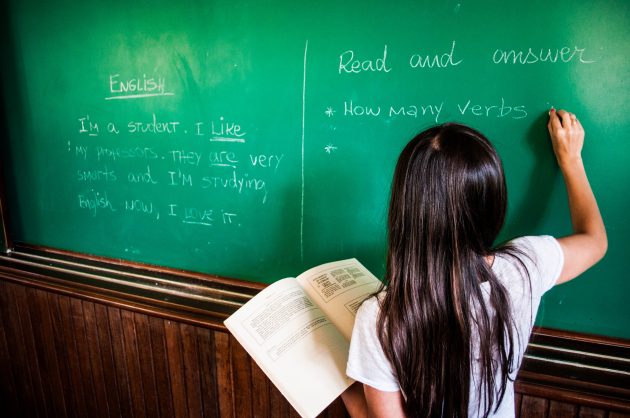 ENGLISH
I'm a student. I LiKe
my professors. THEY are very
smarts and I'm studying
English NOW, I LOVE iT.
Read and answer
* How many verbs
*